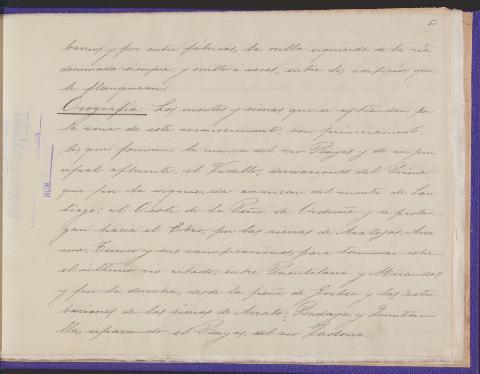 5.
barrios y por entre fábricas, la orilla izquierda de la ría
dominada siempre, y oculto á veces, entre los edificios que
le flanquean.
Orografía. Los montes y sierras que se extienden por
la zona de este reconocimiento, son primeramente,
los que forman la cuenca del río Bayas y de su prin
cipal afluente, el Vadillo, derivaciones del Pirineo
que por la izquierda arrancan del monte de San
tiago, al Oeste de la Peña de Orduña y se prolon
gan hacia el Ebro, por las sierras de
y sus ramificaciones, para terminar sobre
el último río citado, entre Puentelarrá y Miranda;
y por la derecha, desde la peña de Gorbea y las estri
baciones de las sierras de Arrato, Badaya y
separando el Bayas, del río Zadorra.